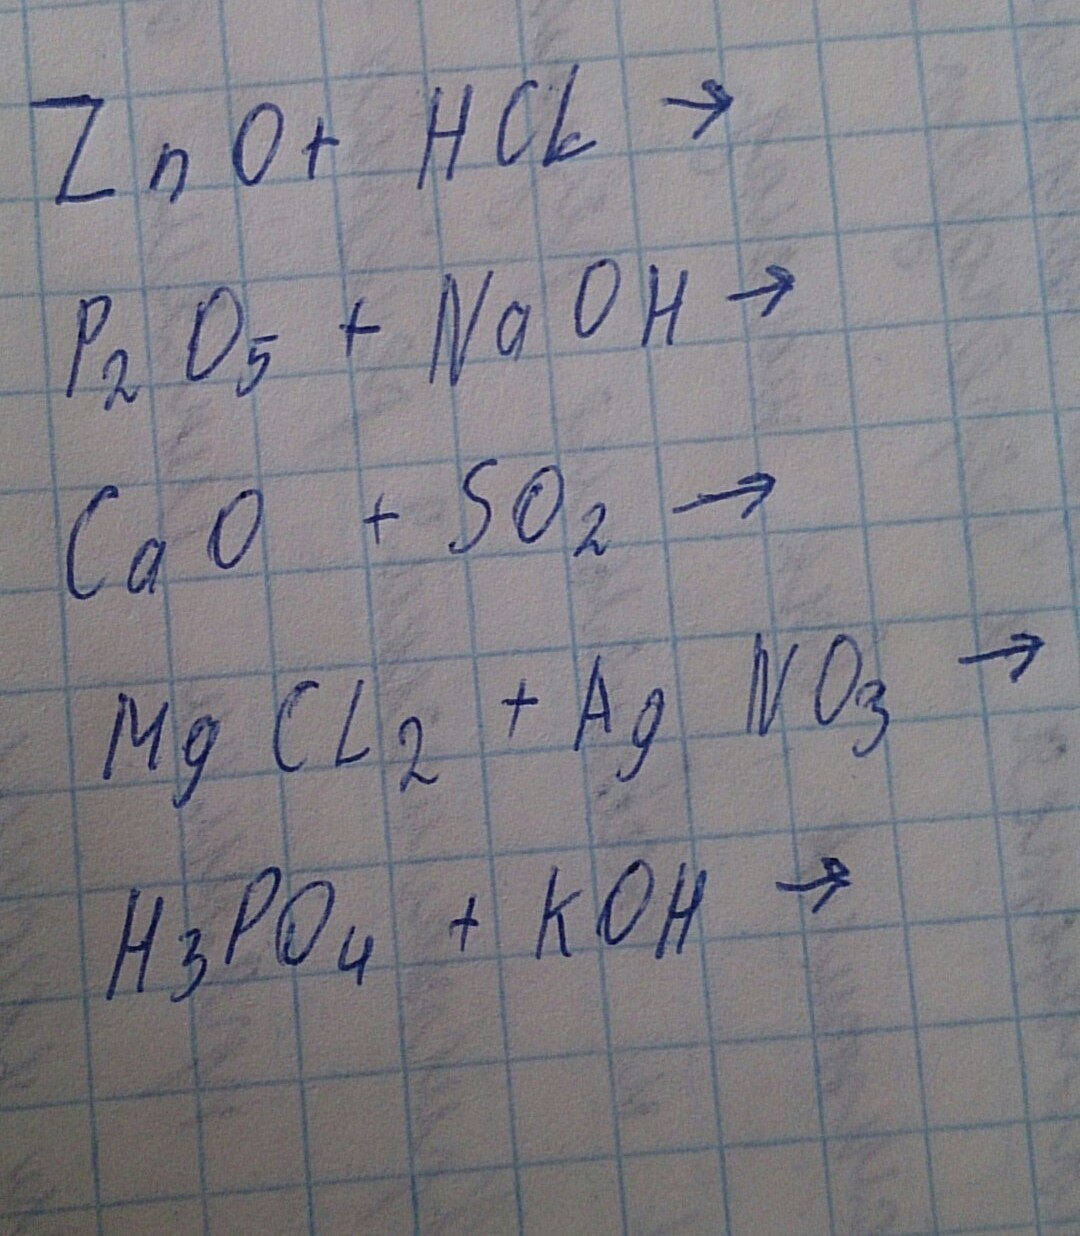 ZnO + HCl →
P₂O₅ + NaOH →
CaO + SO₂ →
MgCL₂ + AgNO₃ →
H₃PO₄ + KOH →